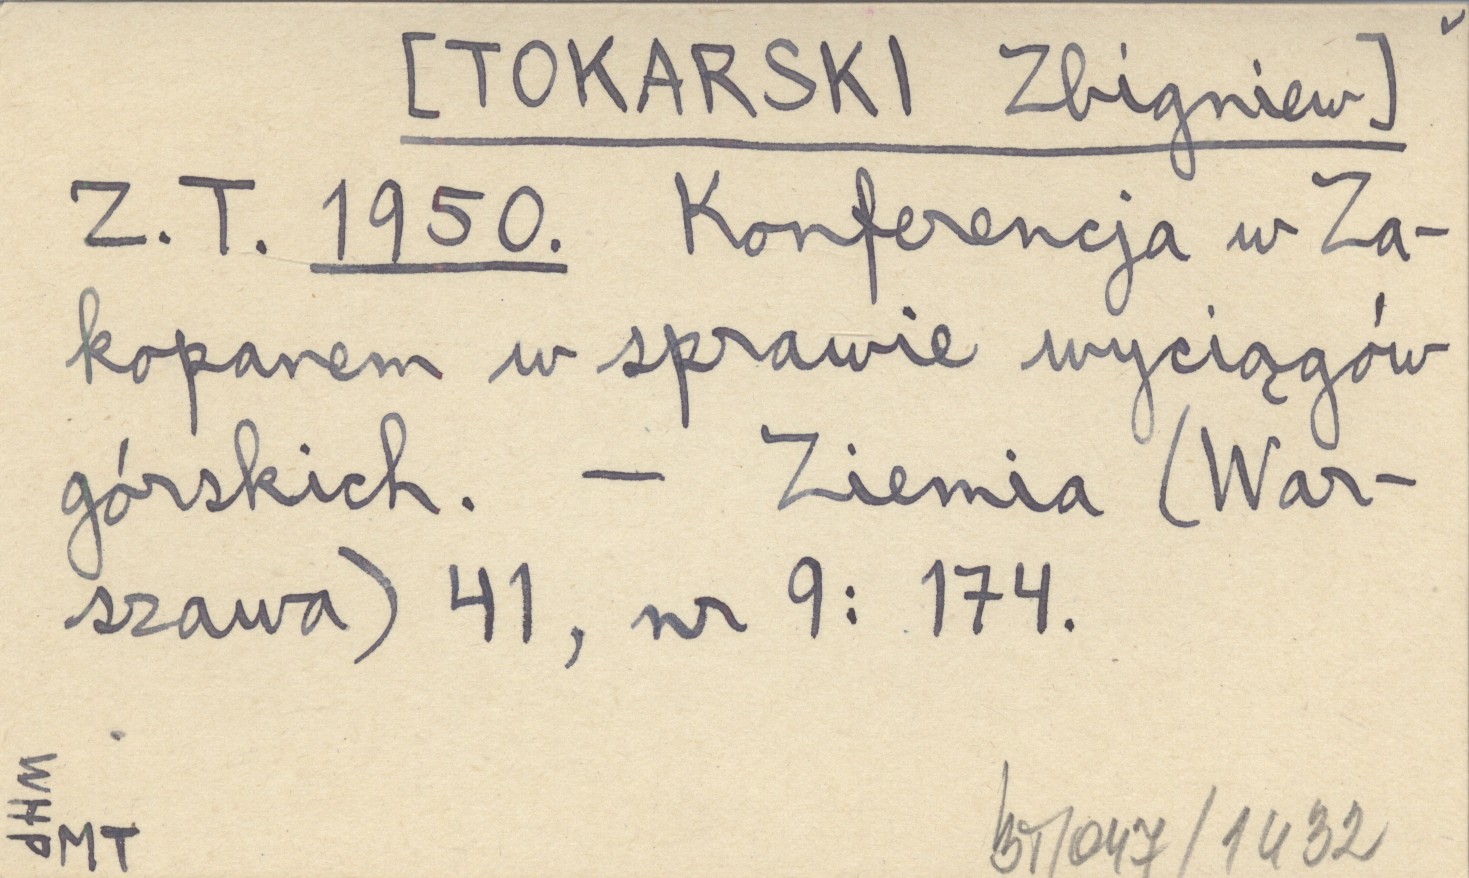 [TOKARSKI Zbigniew]
Z. T. 1950. Konferencja w Za-
kopanem w sprawie wyciągów
górskich. — Ziemia (War-
szawa) 41, nr 9: 174.
WHP
MT
/047/1432